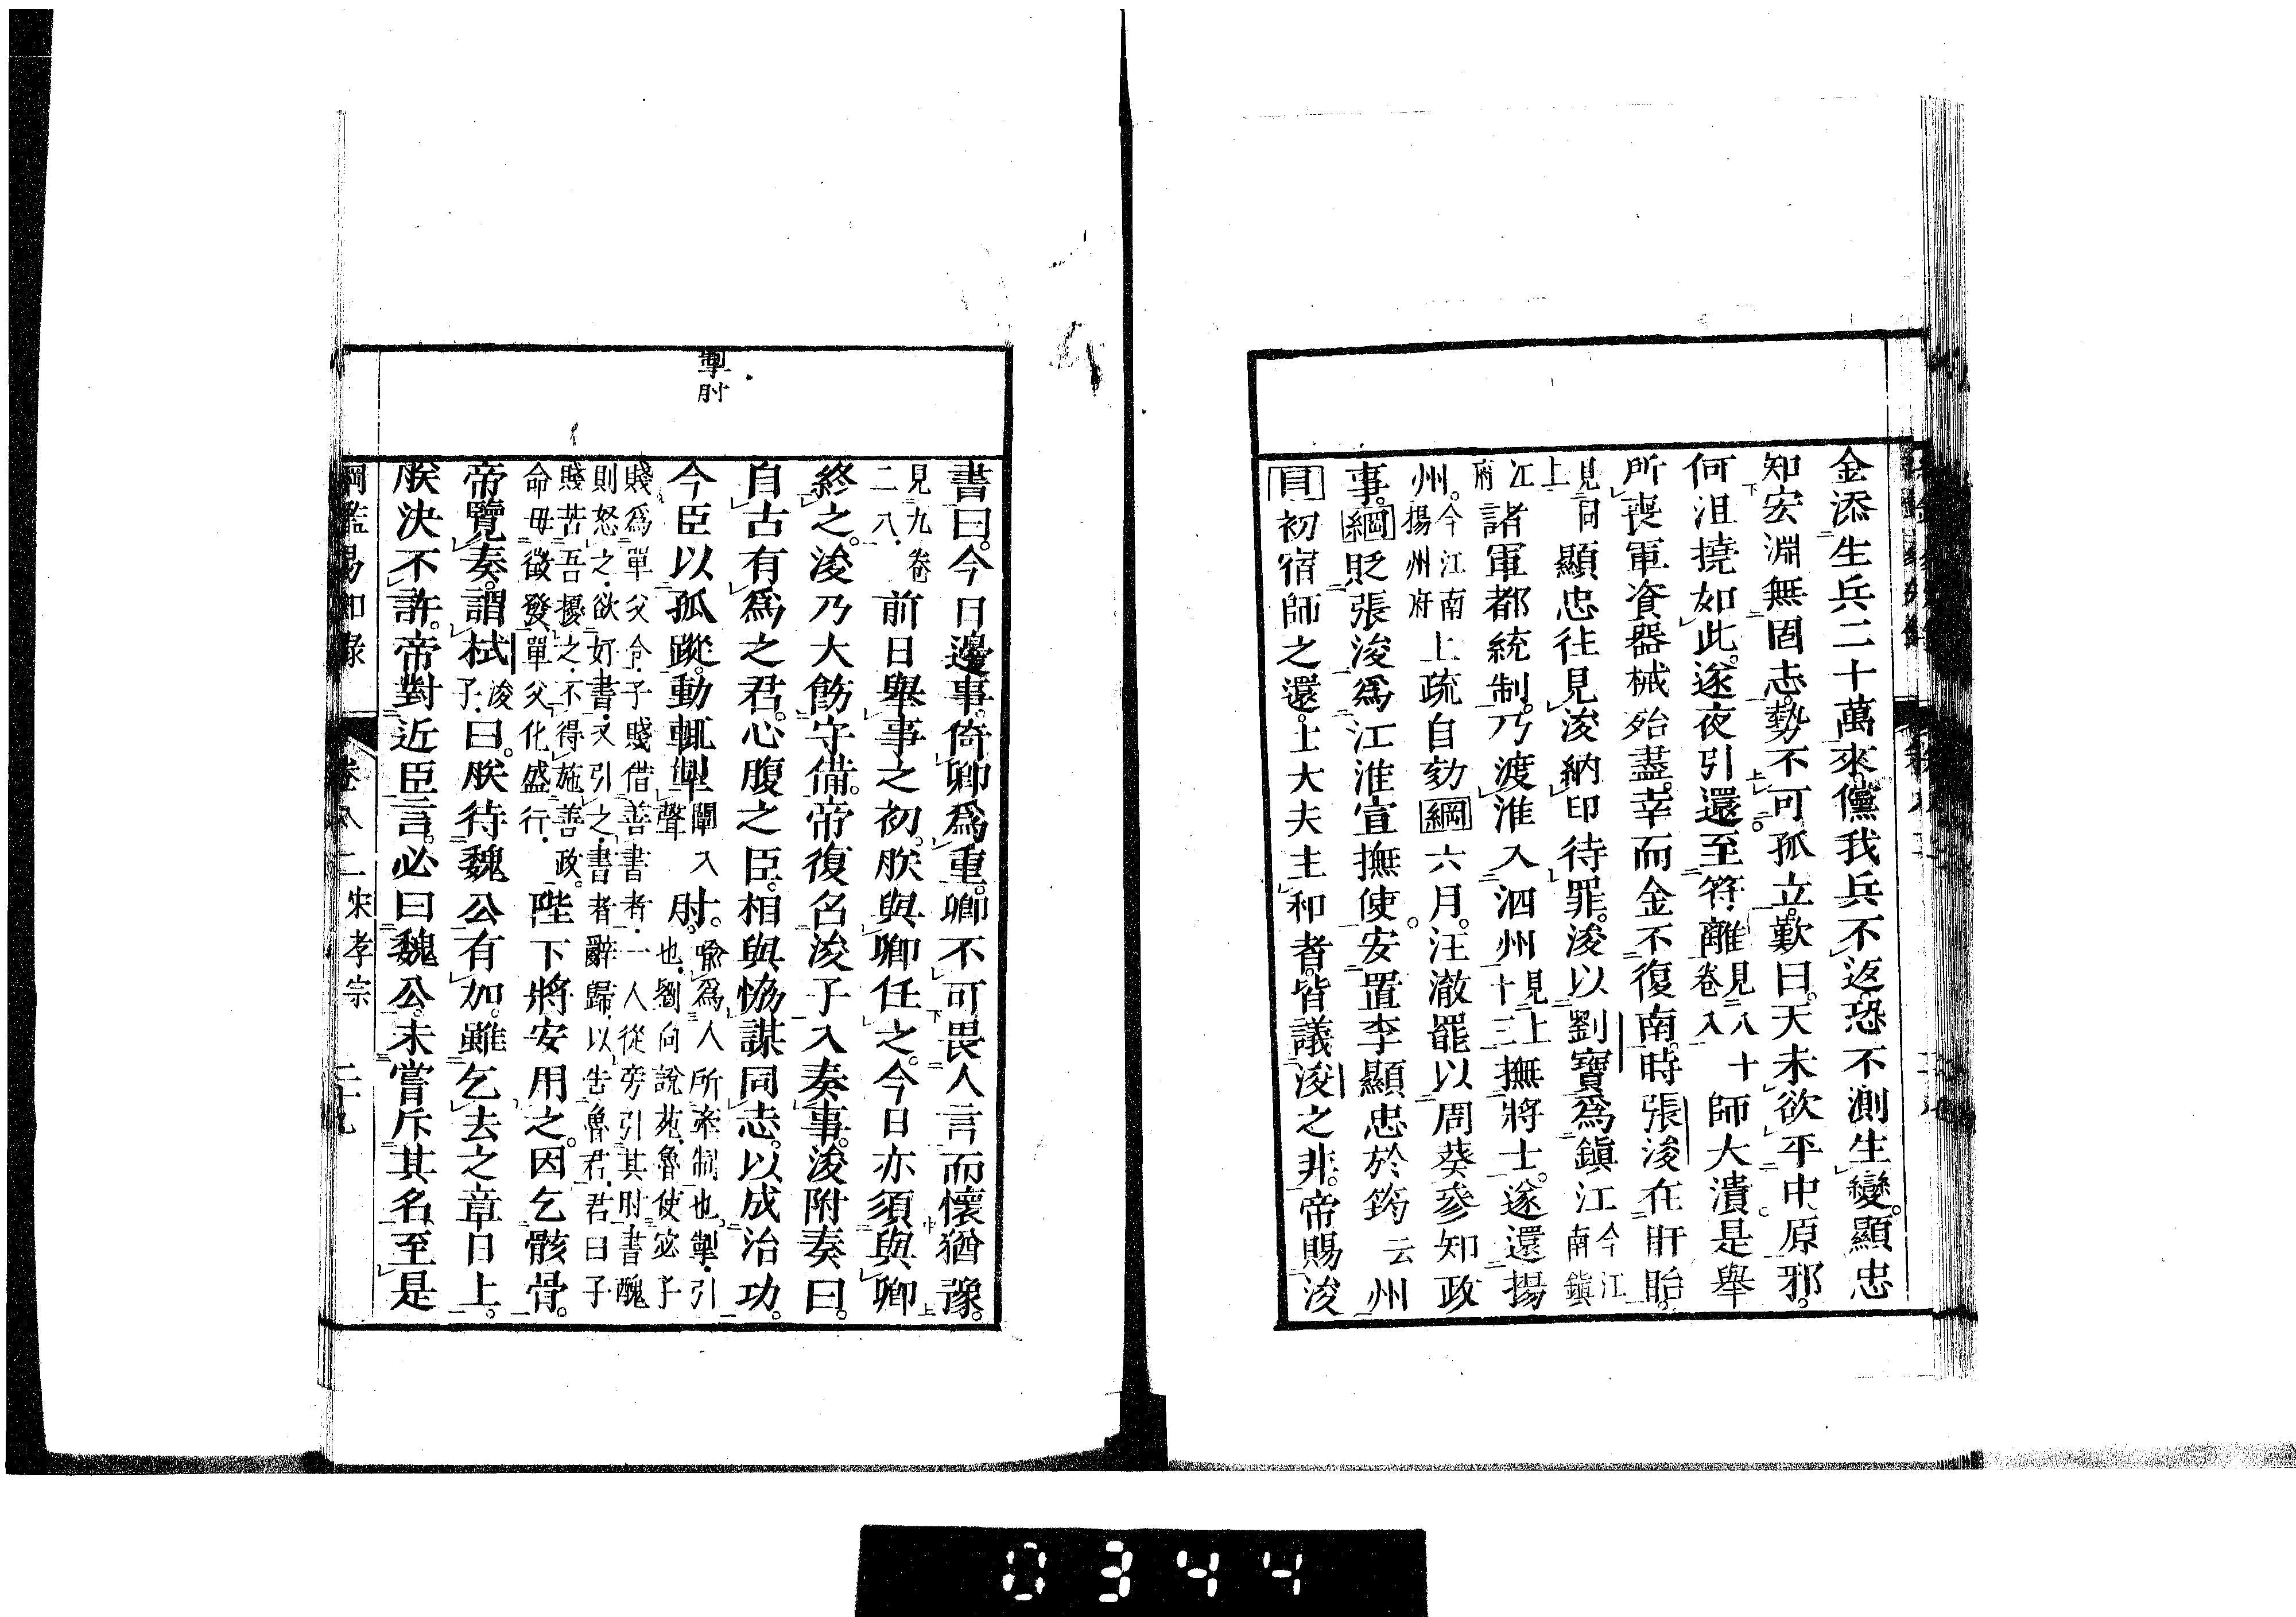 金添生兵二十萬來。儻我兵不返。恐不測生變。顯忠
知宏淵無固志。勢不可孤立。歎曰。天未欲平中原邪。
何沮撓如此。遂夜引還。至符離見八十卷入師大潰。是舉
所喪軍資器械殆盡。幸而金不復南。時張浚在盱眙。
見同上顯忠往見浚納印待罪。浚以劉寶爲鎭江今江南鎭
江府諸軍都統制。乃渡淮入泗州見上十三撫將士。遂還揚
州。今江南揚州府上疏自劾綱六月。汪澈罷以周葵參知政
事。綱貶張浚爲江淮宣撫使。安置李顯忠於筠云州
目初宿師之還。士大夫主和者。皆議浚之非。帝賜浚
書曰。今日邊事。倚卿爲重。卿不可畏人言而懷猶豫。
見九卷二八。前日舉事之初。朕與卿任之。今日亦須與卿
終之。浚乃大飭守備。帝復召浚子入奏事。浚附奏曰。
自古有爲之君。心腹之臣。相與恊謀同志。以成治功。
掣肘
今臣以孤蹤。動輒掣闡入聲肘。喩爲人所牽制也。掣。引也。劉向說苑。魯使宓子
賤爲單父令。子賤借善書者。一人從旁引其肘。書醜
則怒之。欲好書。又引之。書者辭歸。以吿魯君。君曰子
賤苦吾擾之。不得施善政。
命毋徵發。單父化盛行。陛下將安用之。因乞骸骨。
帝覽奏。謂栻浚子。曰。朕待魏公有加。雖乞去之章日上。
朕決不許。帝對近臣言。必曰魏公。未嘗斥其名。至是
綱鑑易知錄 卷八二 宋孝宗 二十九
0344